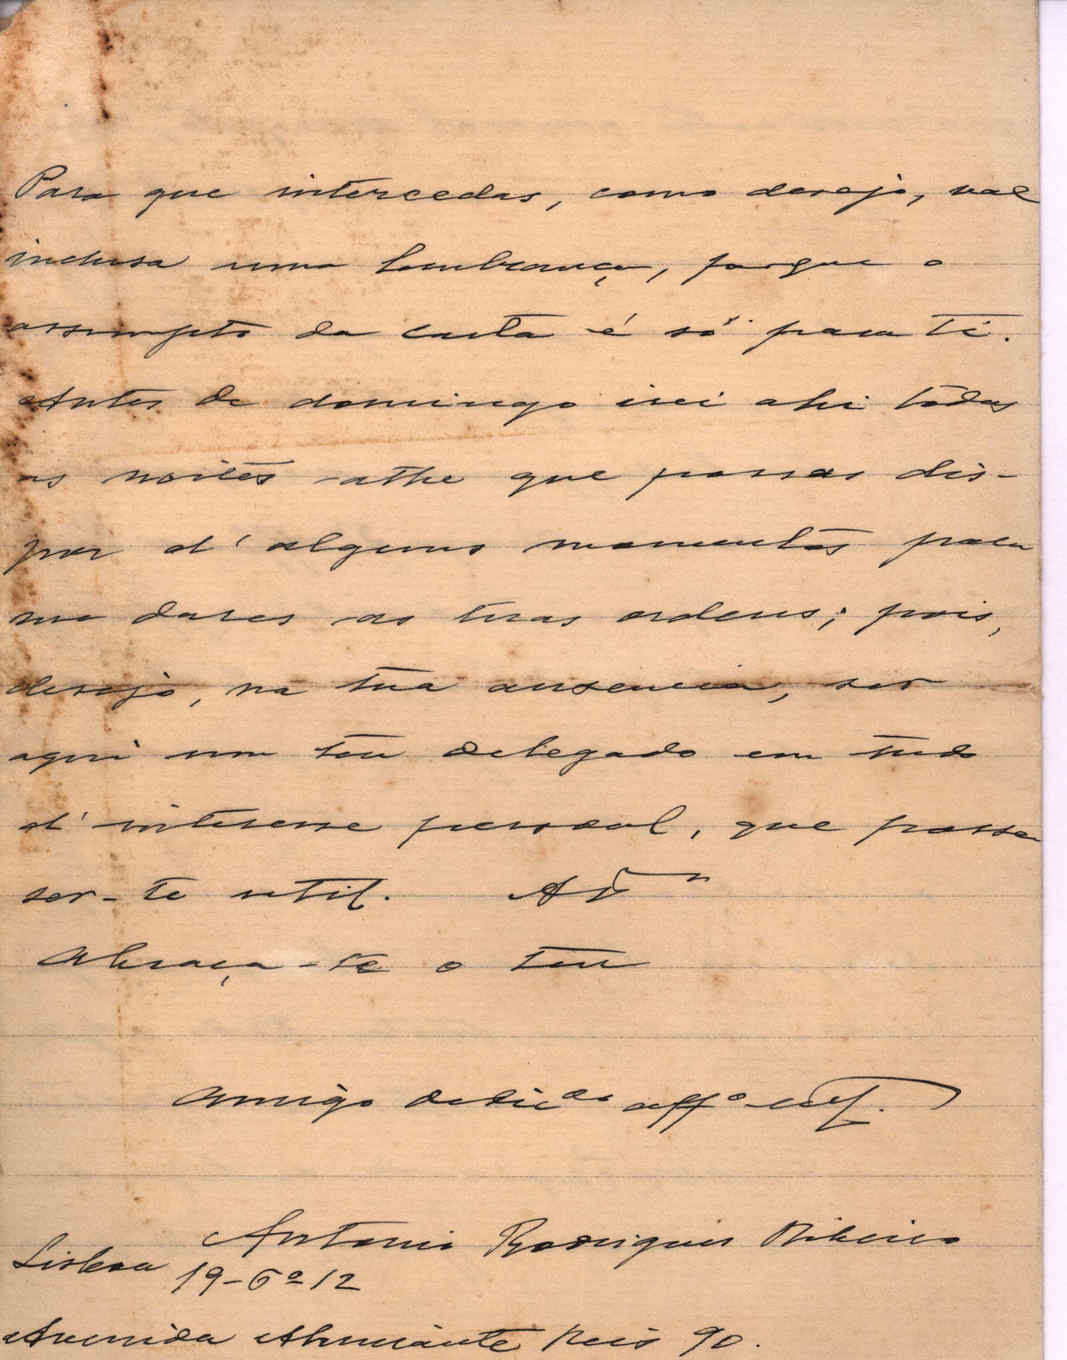 Para que intercedas, como desejo, vae
inclusa uma lembrança, porque o
assumpto da carta é só para ti.
Antes de domingo irei ahi todas
as noites athe que possas dis-
por d'alguns momentos para
me dares as tuas ordens; pois,
desejo, na tua ausencia, ser
aqui um teu delegado em tudo
d'interesse pessoal, que possa
ser-te util. Ads
Abraça-te o teu
Amigo dedicdo affo
Antonio Rodrigues Ribeiro
Lisboa
19-6º-12
Avenida Almirante Reis 90.